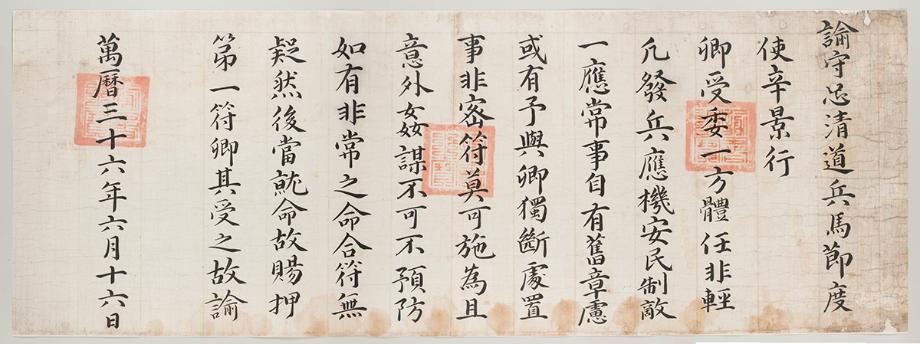 諭守忠清道兵馬節度
使辛景行
卿受委一方體任非輕
凡發兵應機安民制敵
一應常事自有舊章慮
或有予與卿獨斷處置
事非密符莫可施為且
意外姦謀不可不預防
如有非常之命合符無
疑然後當就命故賜押
第一符卿其受之故諭
萬曆三十六年六月十六日